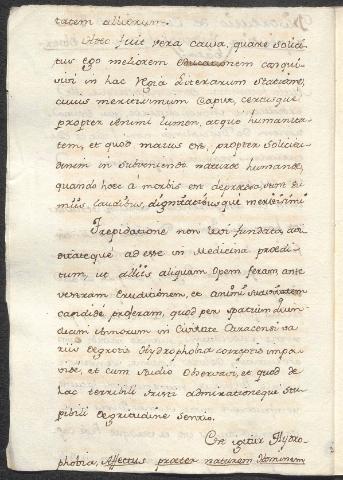 tatem allitorum.
Haec fuit vera causa, quare solici-
tus ego meliorem educationem conqui-
sivi in hac Regia Literarum statione,
cuius meritissimum Caput, certusque
propter animi lumen, atque humanita-
tem, et quod maius est, propter solicitu-
dinem in subveniendo naturae humanae,
quando haec a morbis est depressa, sunt exi-
miis laudibus, dignitatibusque meritissimi
Trepidatione non levi fundata, au-
ditateque ad esse in Medicina praedi-
tum, ut alliis aliquam opem feram, ante
vestram Eruditionem, et animi
candide proferam, quod per spatium Quin-
decim Annorum in Civitate Caracensi va
riis Aegrotis Hydrophobia correptis impa-
vide, et cum studio observavi, et quod de
hac terribili tristi admirationeque stu-
pibili Aegritudine sentio.
Est igitur Hydro-
phobia, Affectus praeter naturam Hominem